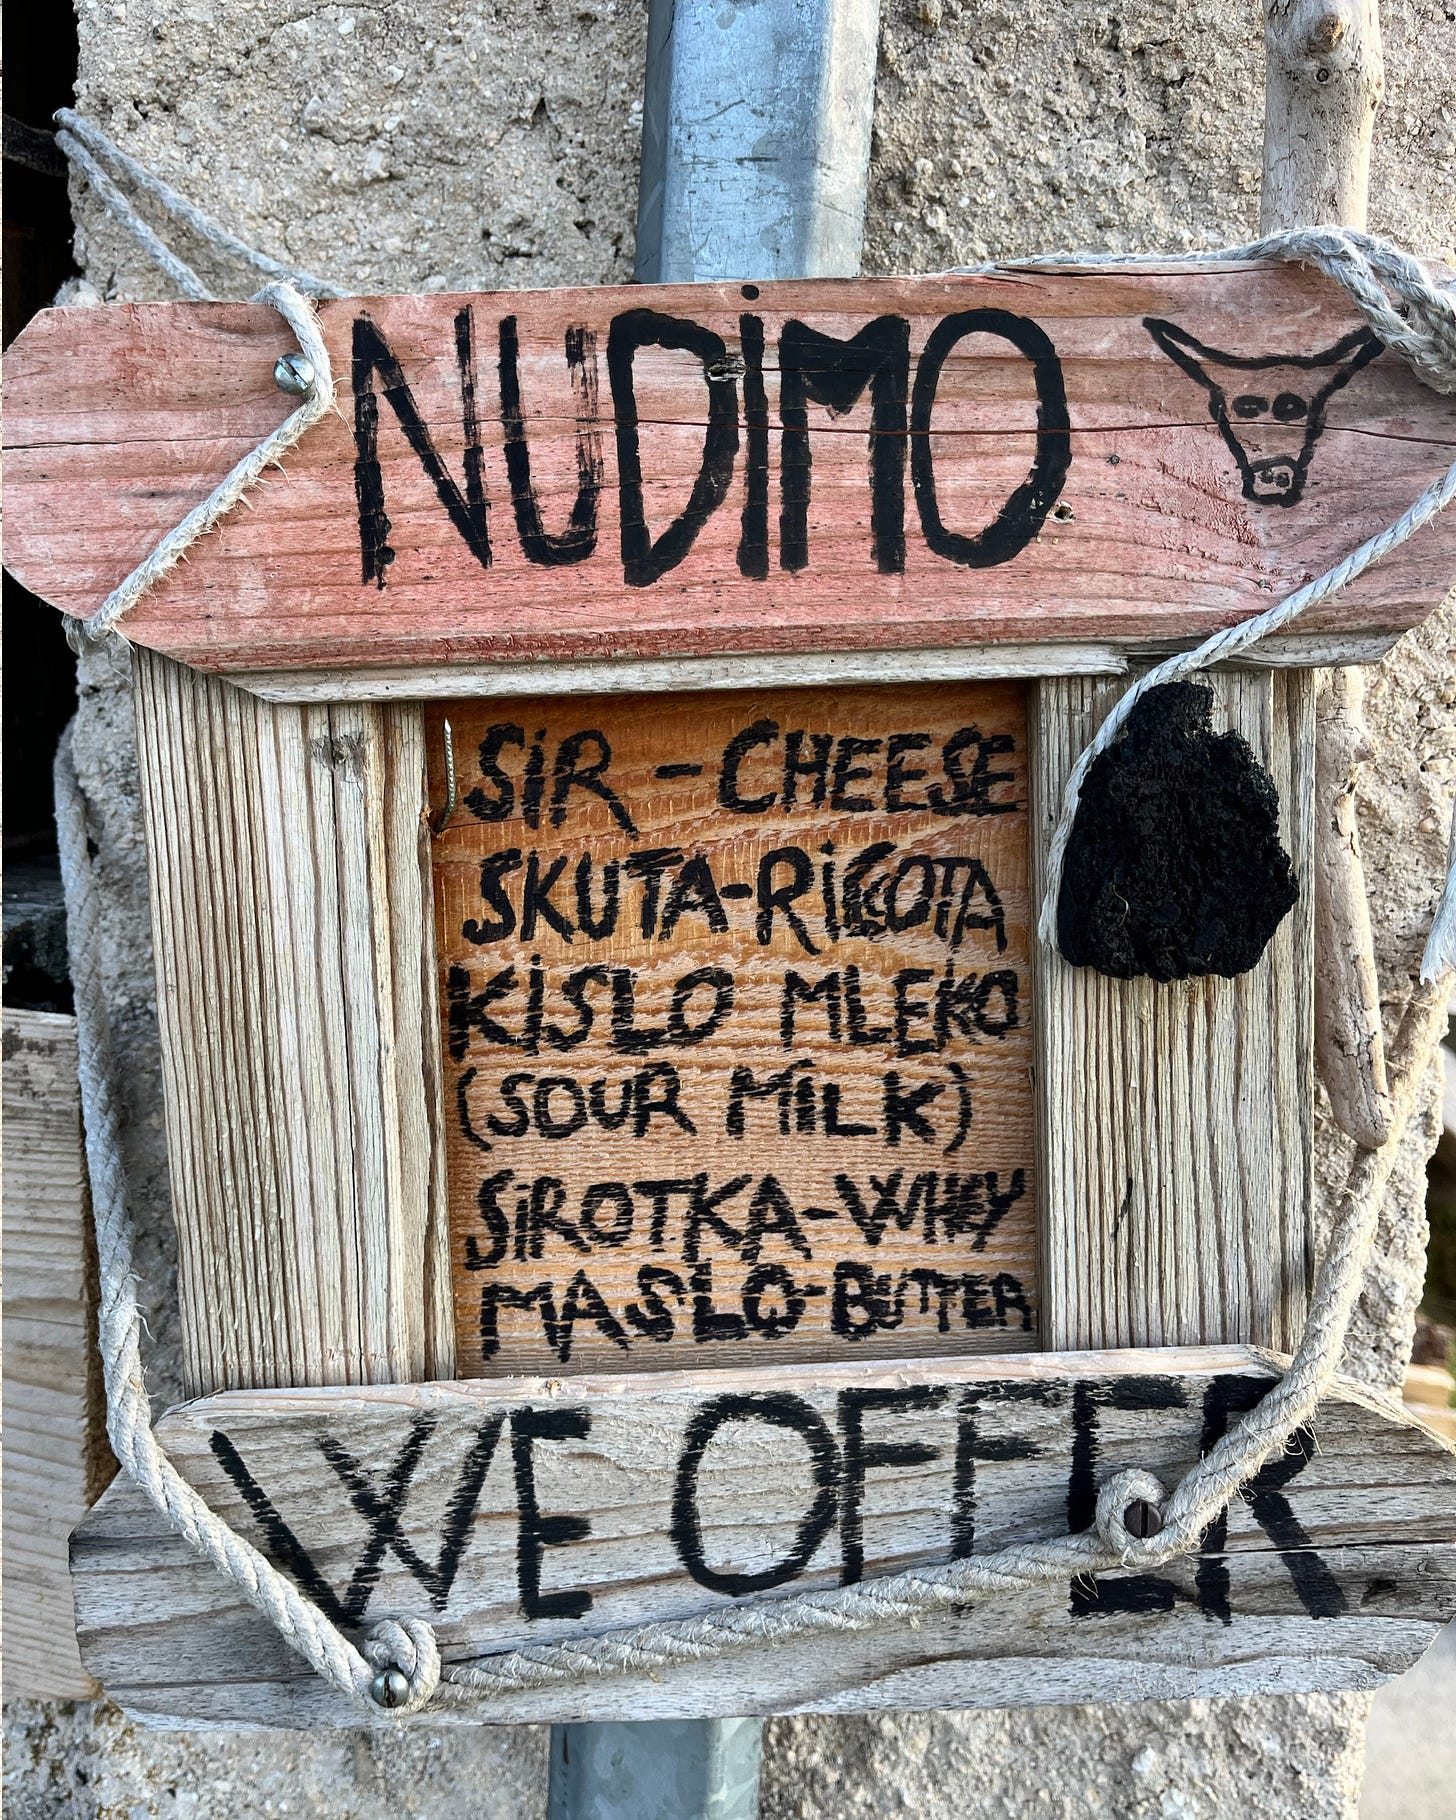 NUDIMO
SIR - CHEESE
SKUTA-RICOTA
KISLO MLEKO
(SOUR MILK)
SIROTKA-WHEY
MASLO-BUTTER
WE OFFER